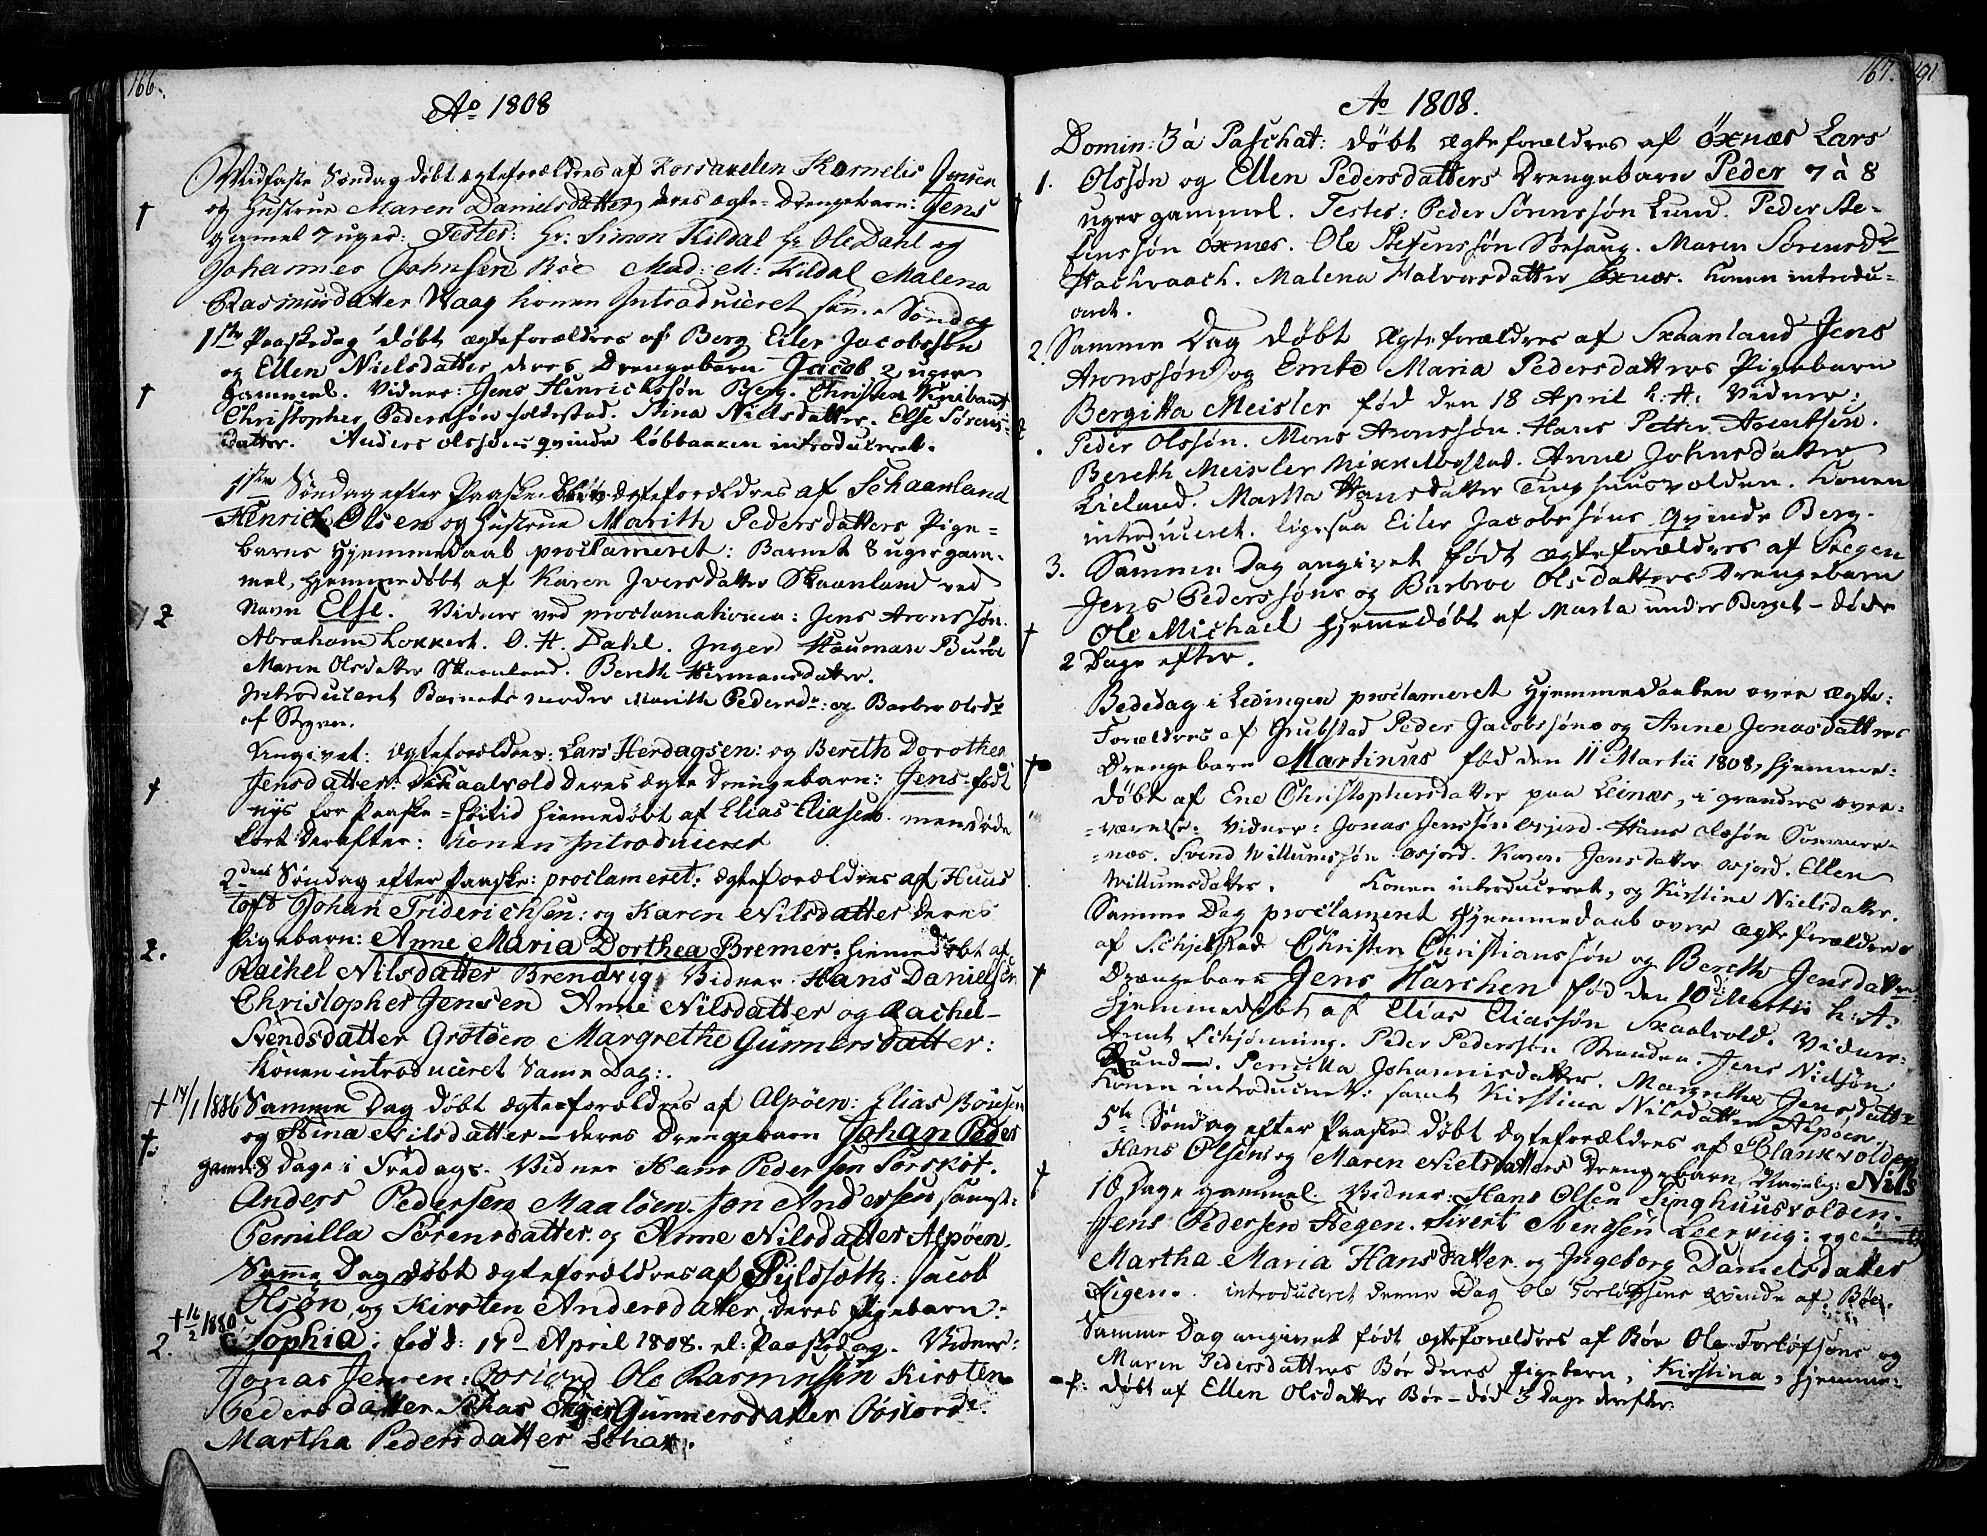 166.
Ao 1808
Midfaste Søndag døbt ægteforældres af Kornelis Jensen
og Hustrue Maren Danielsdatter deres ægte Drengebarn: Jens
gammel 7 uger: Testes: Hr: Simon Kildal Hr Ole Dahl og
Johannes Johnsen Böe Mad: M: Kildal Malena
Rasmusdatter Vaag konen Introduceret samme Søndag
1ste Paaskedag døbt ægteforældres af Berg Eiler Jacobssøn
og Ellen Nielsdatter deres Drengebarn Jacob 2 uger
Gammel. Vidner: Jens Henrichssøn Berg. Christen
Christopher Pederssøn Anna Nielsdatter. Else Sørens-
datter. Anders Olssøns qvinde Løbbakken introduceret.
1ste Søndag efter Paaske blev ægteforældres af Schaanland
Henrich Olsen og Hustrue Marith Pedersdatters Pige-
barns Hjemmedaab proclameret: Barnet 8 uger gam-
mel, hjemmedøbt af Karen Iversdatter Skaanland ved
Navn Else. Vidner ved proclamationen: Jens Aronssøn.
2
Abraham Lokkert. O. H. Dahl. Inger Hauman Buröe
Maren Olsdatter Skaanland. Bereth Hermansdatter.
Introduceret Barnets moder Marith Pedersdr: og Barbro Olsdr
af Stegen.
Angivet: ægteforældres: Lars Herdagsen: og Bereth Dorothea
Jensdatter: Skaalvold deres ægte Drengebarn: Jens født
nys for Paaske-Høitid hiemedøbt af Elias Eliasen. men døde
kort derefter: konen Introduceret
2den Søndag efter Paaske: proclameret: ægteforældres af Huus
toft Johan Friderichsen: og Karen Nilsdatter deres
Pigebarn: Anne Maria Dorthea Bremer: hiemedøbt af
2.
Rachel Nilsdatter Brendvig Vidner Hans Danielsen
Christopher Jensen Anne Nilsdatter og Rachel
Svendsdatter Grotöen Margrethe Gunnersdatter:
Konen introduceret Same Dag:
14/1 1886 Samme Dag døbt ægteforældres af Alpöen: Elias
og Stina Nilsdatter - deres Drengebarn Johan Peder
gaml: 8 Dage i Fredags. Vidner Hans Pedersen Sørskot.
Anders Pedersen Maalöen. Jon Andersen
Pernilla Sörensdatter og Anne Nilsdatter Alpöen.
Samme Dag døbt ægteforældres af Jacob
Olsøn og Kirsten Andersdatter, deres Pigebarn:
16/2 1880
2.
Sophia: fød d: 17d April 1808. Paaskedag. Vidner:
Jonas Jensen: Ole Rasmussen Kirsten
Pedersdatter Gunnersdatter
Martha Pedersdatter
167. 191
Ao 1808.
Domin: 3 à Paschat: døbt ægteforældres af Öxnæs Lars
1. Olssøn og Ellen Pedersdatters Drengebarn Peder 7 à 8
uger gammel. Testes: Peder Sørenssøn Lund. Peder Ste-
finssøn Öxnæs. Ole Stefenssøn Maren Sørensdr
Malena Halvorsdatter Öxnæs. Konen introdu-
ceret.
2. Samme Dag døbt ægteforældres af Skaanland Jens
Aronssøn og Maria Pedersdatters Pigebarn
Bergitta Meisler fød den 18 April h: A: Vidner:
Peder Olssøn. Mons Aronssøn. Hans Petter Arentsen.
Bereth Meisler Mikkelbostad. Anne Johnsdatter
Lieland. Martha Hansdatter Tinghuusvolden. Konen
introduceret. ligesaa Eiler Jacobssøns qvinde Berg.
3. Samme Dag angivet født ægteforældres af Stegen
Jens Pederssøns og Barbroe Olsdatters Drengebarn
Ole Michael hjemmedøbt af Marta under Berget - døde
2 Dage efter.
Bededag i Lødingen proclameret Hjemmedaaben over ægte-
Forældres af Grubstad Peder Jacobssøns og Anne Jonasdatters
Drengebarn Martinus fød den 11 Martii 1808, hjemme-
døbt af Ene Christophersdatter paa Leinæs, i grandes over-
værelse. Vidner: Jonas Jenssøn Hans Olssøn
næs. Svend Willumssøn Karen Jensdatter Ellen
Willumsdatter. Konen introduceret, og Kirstine Nielsdatter.
Samme Dag proclameret Hjemmedaab over ægteforældres
af Christen Christianssøn og Bereth Jensdatters
Drængebarn Jens Harchen fød den 10d: Martii h: A:
hjemmedøbt af Elias Eliassøn Skaalvold. Vidner:
Arent Schjønning. Peder Pederssøn Stranden. Jens Nielssøn
Pernilla Johannisdatter. Margrethe Jensdattr
Konen introduceret: samt Kirstina Nilsdatter Alpöen.
5te Søndag efter Paaske døbt ægteforældres af
Hans Olsen og Maren Nielsdatters Drengebarn Navnlig: Nils
18 Dage gammel Vidner: Hans Olsen Tinghuusvolden.
Jens Pedersen Stegen. Sivert Svendsen Leervig: og
Martha Maria Hansdatter og Ingeborg Danielsdatter
Stigen. introduceret denne Dag Ole qvinde af Böe.
Samme Dag angivet født ægteforældres af Böe Ole Torlofsøns og
Maren Pedersdatters Böe deres Pigebarn, Kirstina, hjemme-
døbt af Ellen Olsdatter Böe - død 3 Dage derefter.